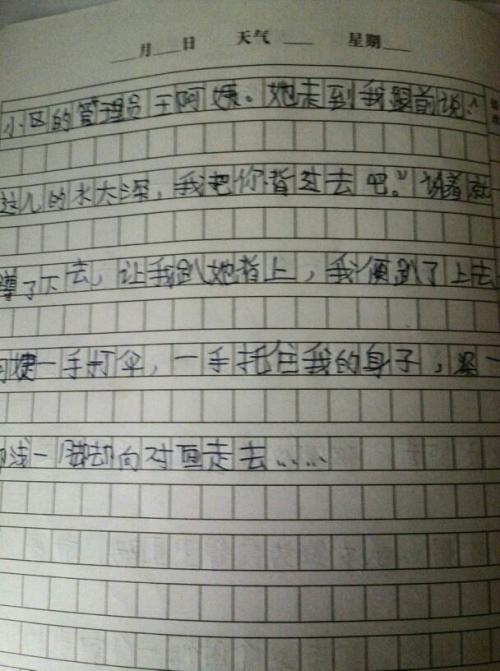 月 日 天气 星期
小区的管理员王阿姨。她走到我跟前说:“
这儿的水太深,我把你背过去吧。”说着就
蹲了下去,让我趴她背上,我便趴了上去
姨一手打伞,一手托住我的身子,深一
浅一脚却向对面走去……